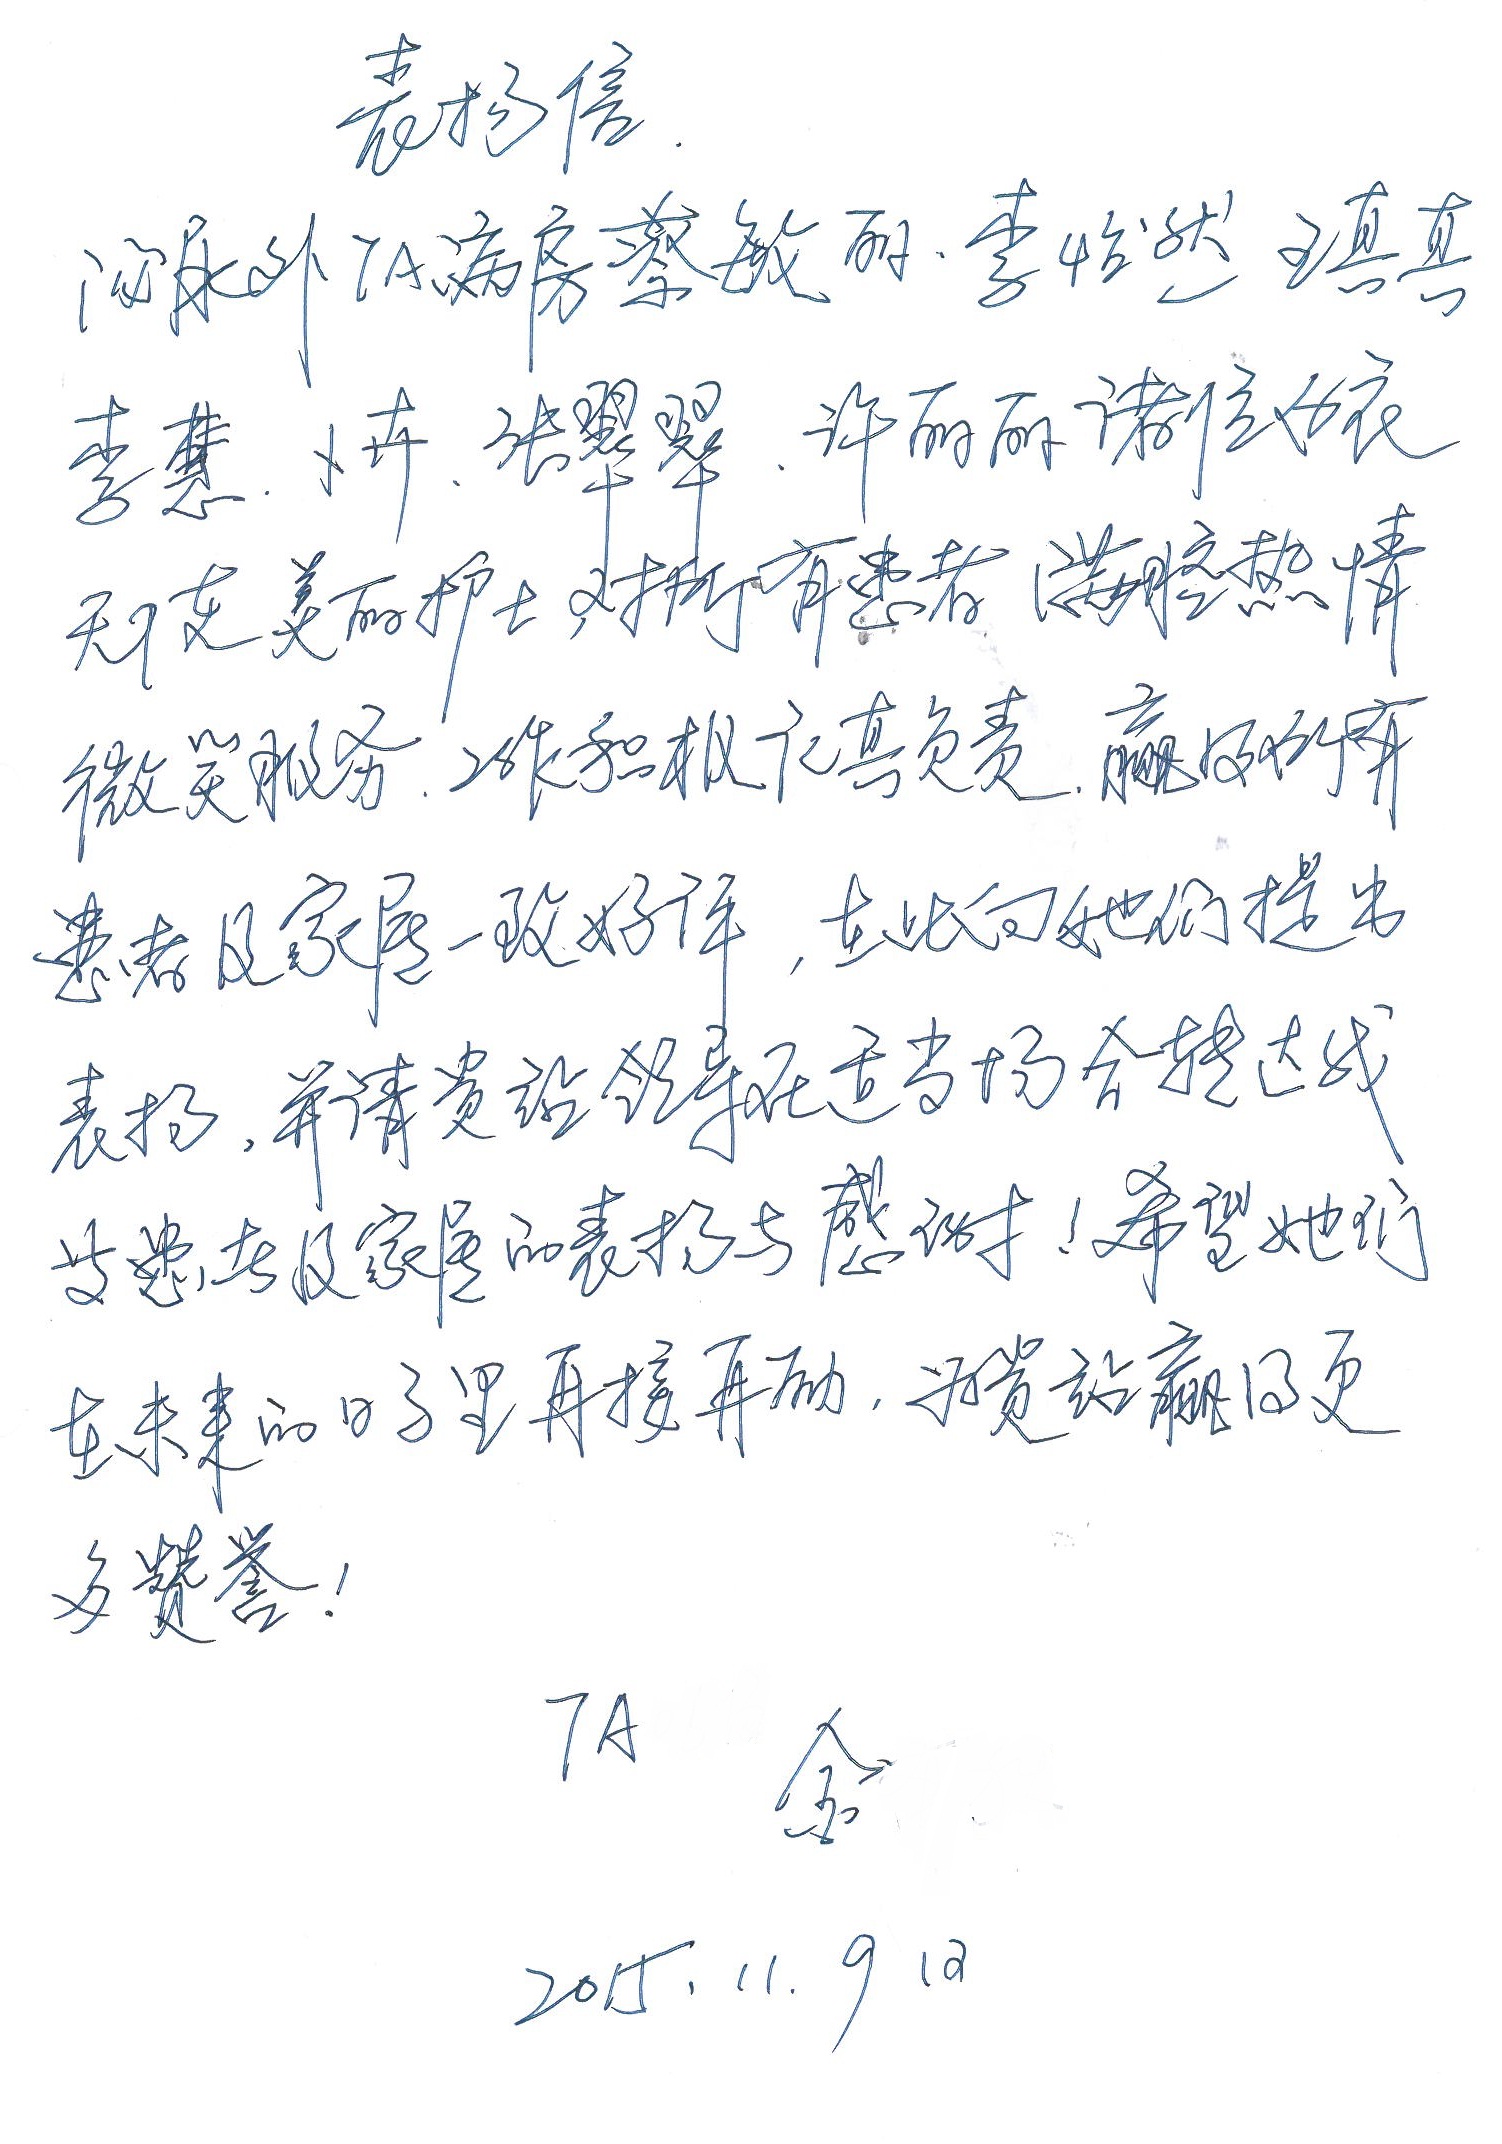 表扬信.
泌尿外7A病房蔡敏丽.李怡然 王真真
李慧.卜卉.张翠翠.许丽丽诸位白衣
天使美丽护士,对所有患者满腔热情
微笑服务.工作积极认真负责.赢得所有
患者及家属一致好评,在此向她们提出
表扬,并请贵站领导在适当场合转达我
及患者及家属的表扬与感谢!希望她们
在未来的日子里再接再励.为贵站赢得更
多赞誉!
7A
金
2015.11.9日